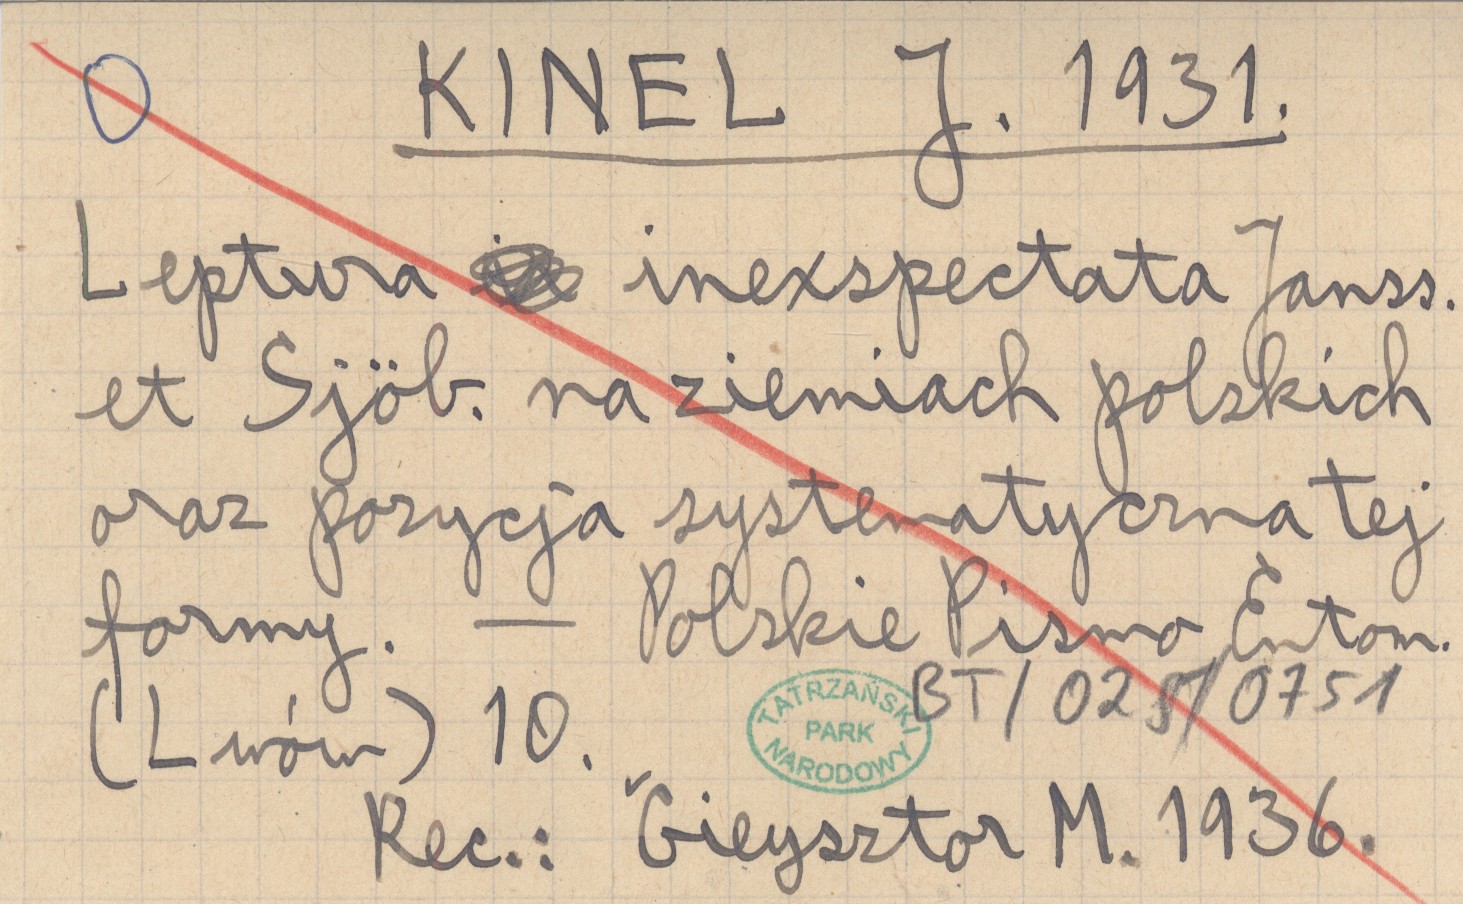 KINEL J. 1931.
Leptura inexspectata Janss.
et Sjöb. na ziemiach polskich
oraz pozycja systematyczna tej
formy. — Polskie Pismo Entom.
(Lwów) 10.
BT/025/0751
TATRZAŃSKI
PARK
NARODOWY
Rec.: Gieysztor M. 1936.